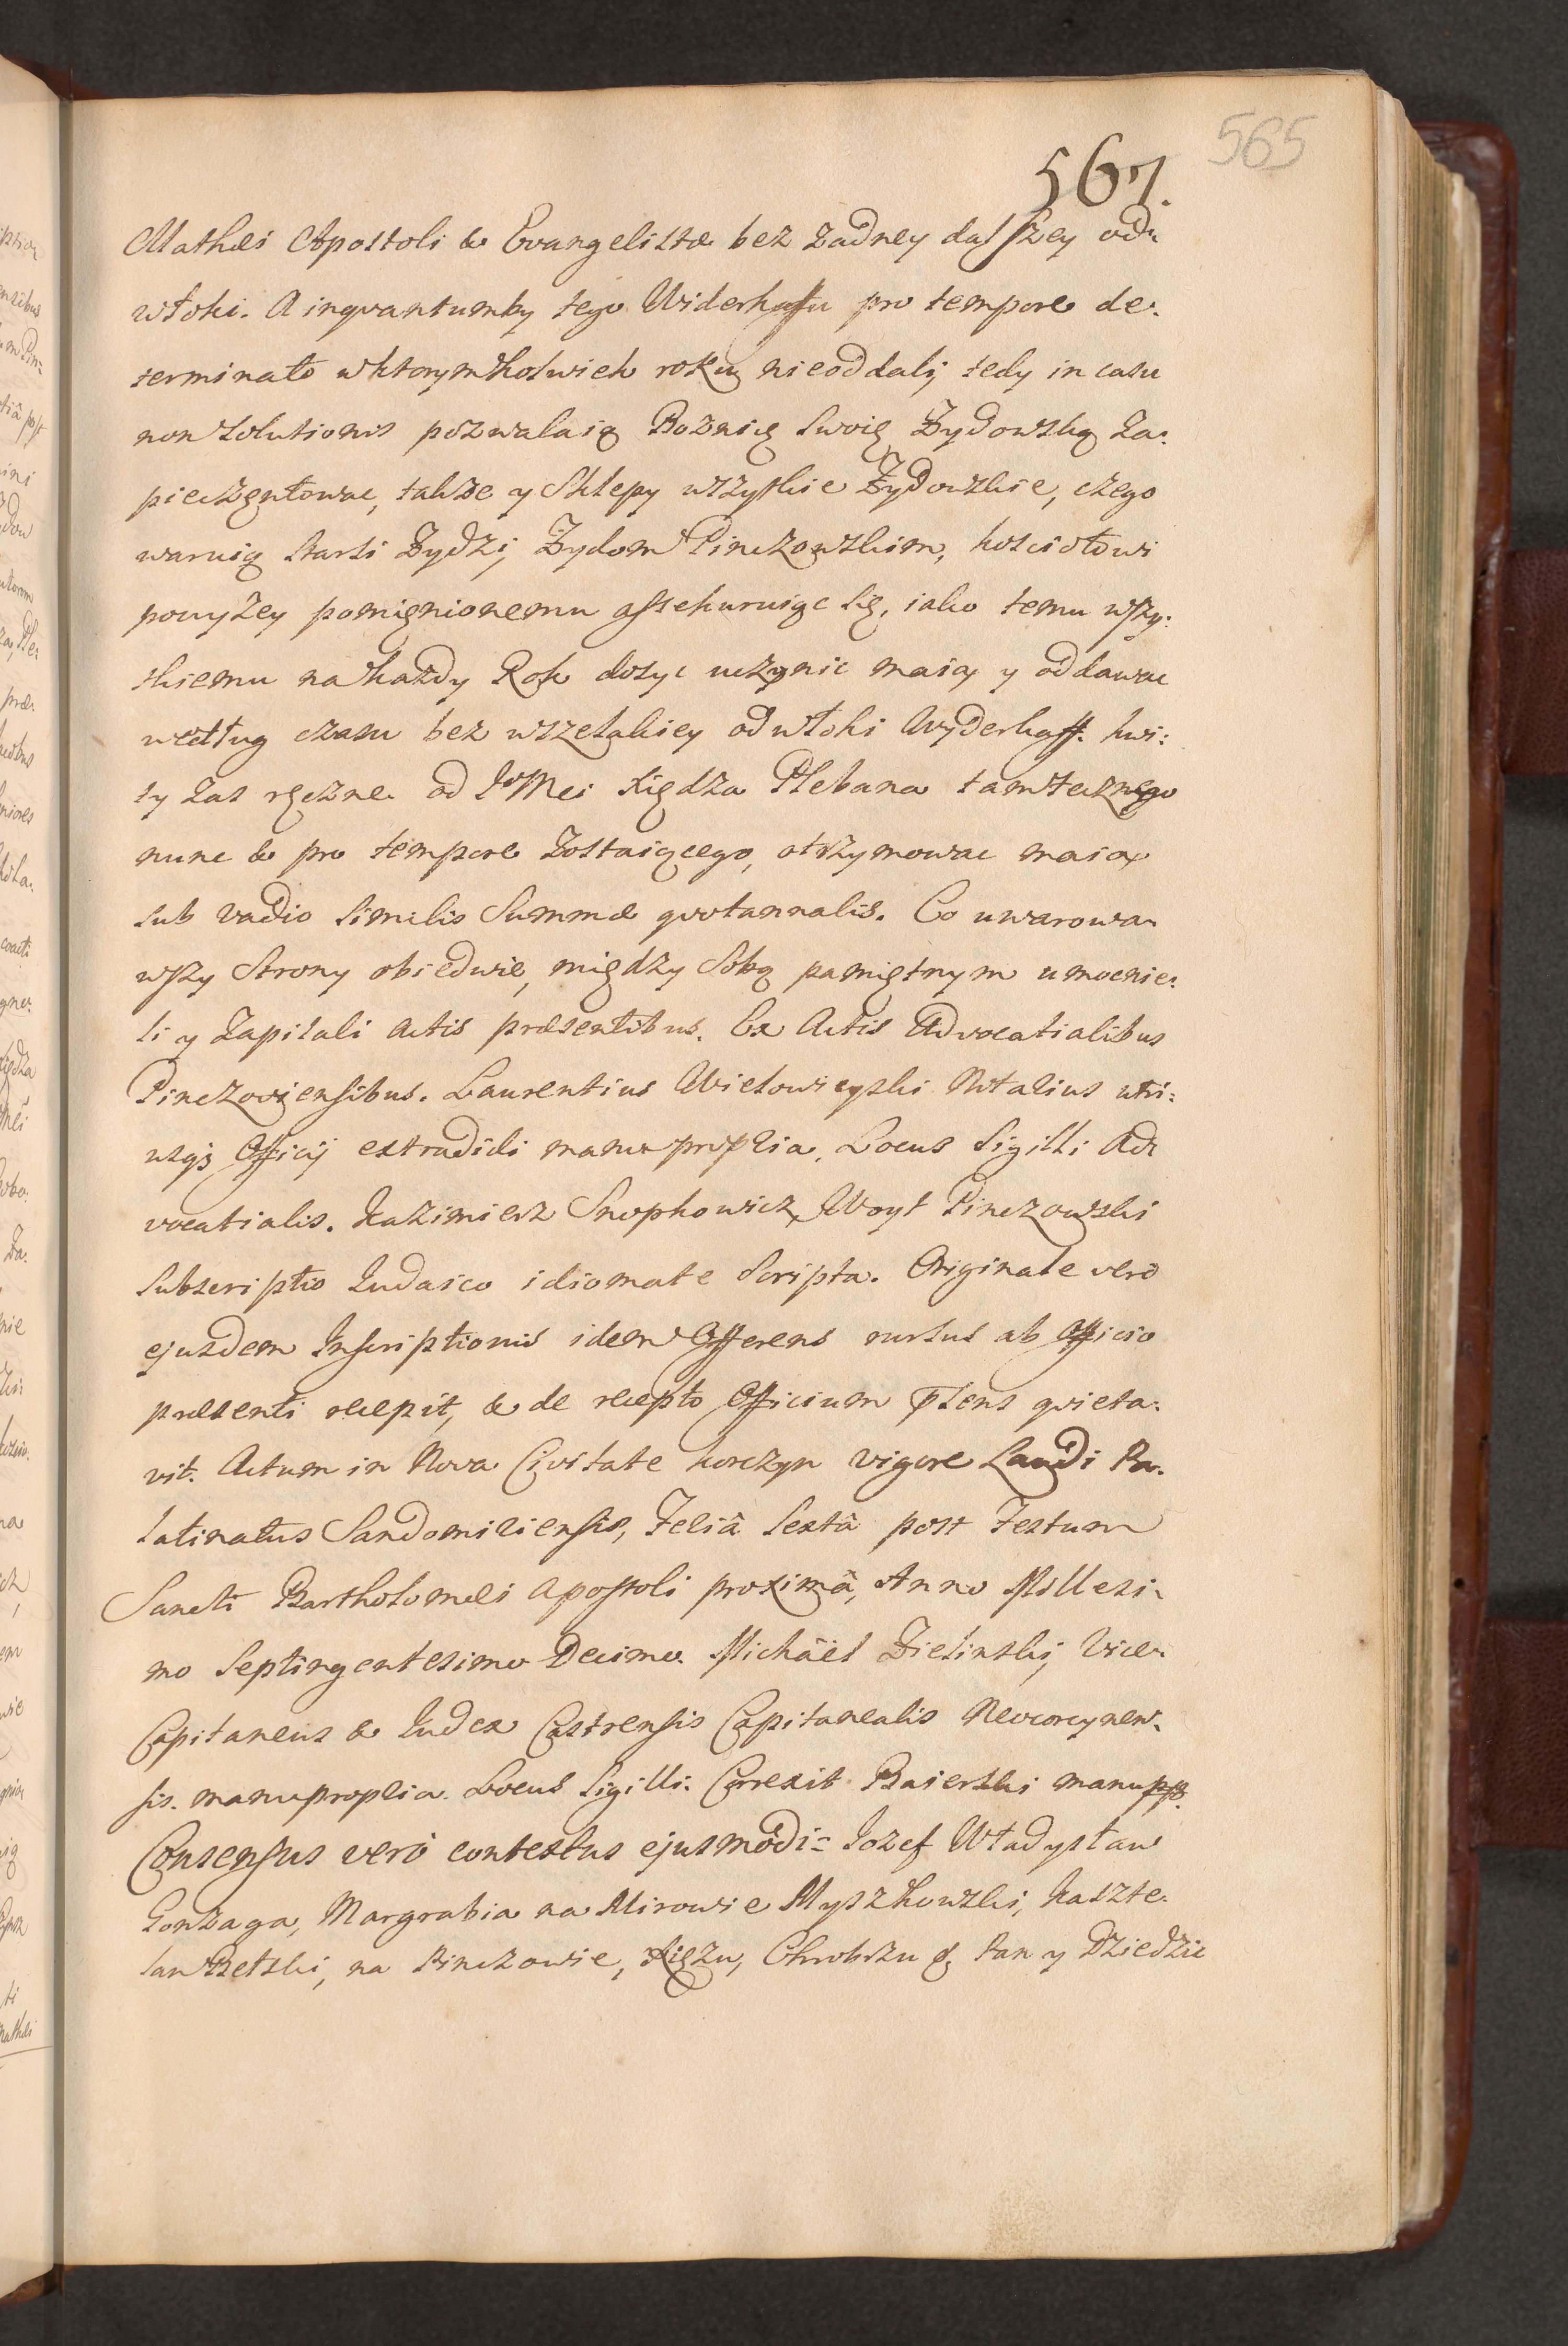 565
567.
Mathæi Apostoli & Evangelistæ bez zadney dalszey od:
włoki. A inqvantumby tego Widerkaffu pro tempore de:
terminato wktorymkolwiek roku nieoddali, tedy in casu
non solutionis pozwalaią Boznię swoię Zydowską za:
pieczętowac, takze y Sklepy wszystkie Zydowskie, czego
waruią starsi Zydzi, Zydom Pinczowskim, kosciołowi
powyzey pomienionemu assekuruiąc się, iako temu wszy:
stkiemu na kazdy Rok dosyc uczynic maią y oddawac
według czasu bez wszelakiey odwłoki Wyderkaff. kwi:
ty zas ręczne od JoMci Xiędza Plebana tamtecznego
nunc & pro tempore zostaiącego, otrzymowac maią
sub vadio similis Summæ qvotannalis. Co uwarowa:
wszy Strony obiedwie, między sobą pamiętnym umocnie:
li y zapisali Actis præsentibus. Ex Actis Advocatialibus
Pinczoviensibus. Laurentius Wielowieyski Notarius utri:
usq3 Officij extradidi manu propria. Locus Sigilli Ad:
vocatialis. Kazimierz Snopkowicz, Woyt Pinczowski
Subscriptio Judaico idiomate scripta. Originale vero
ejusdem Inscriptionis idem Offerens rursus ab Officio
præsenti recepit, & de recepto Officium pñsens qvieta:
vit. Actum in Nova Civitate Korczyn vigore Laudi Pa:
latinatus Sandomiriensis, Feriâ Sextâ post Festum
Sancti Bartholomæi Apostoli proximâ, Anno Millesi:
mo Septingentesimo Decimo. Michäel Zielinski, Vice:
Capitaneus & Judex Castrensis Capitanealis Neocorcynen:
sis. manupropria. Locus Sigilli. Correxit Baierski manuppr.
Consensus verò contextus ejusmodi = Jozef Władysław
Gonzaga, Margrabia na Mirowie Myszkowski, Kaszte:
lan Bełski, na Pinczowie, Xięzu, Chrobrzu & Pan y Dziedzic